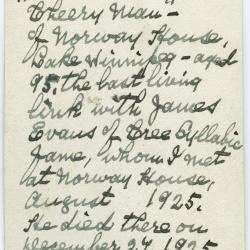 "Cheery Man"-
of Norway House,
Lake Winnipeg - aged
95, the last living
link with James
Evans of Cree Syllabic
fame, whom I met
at Norway House,
August 1925.
He died there on
December 27 1925